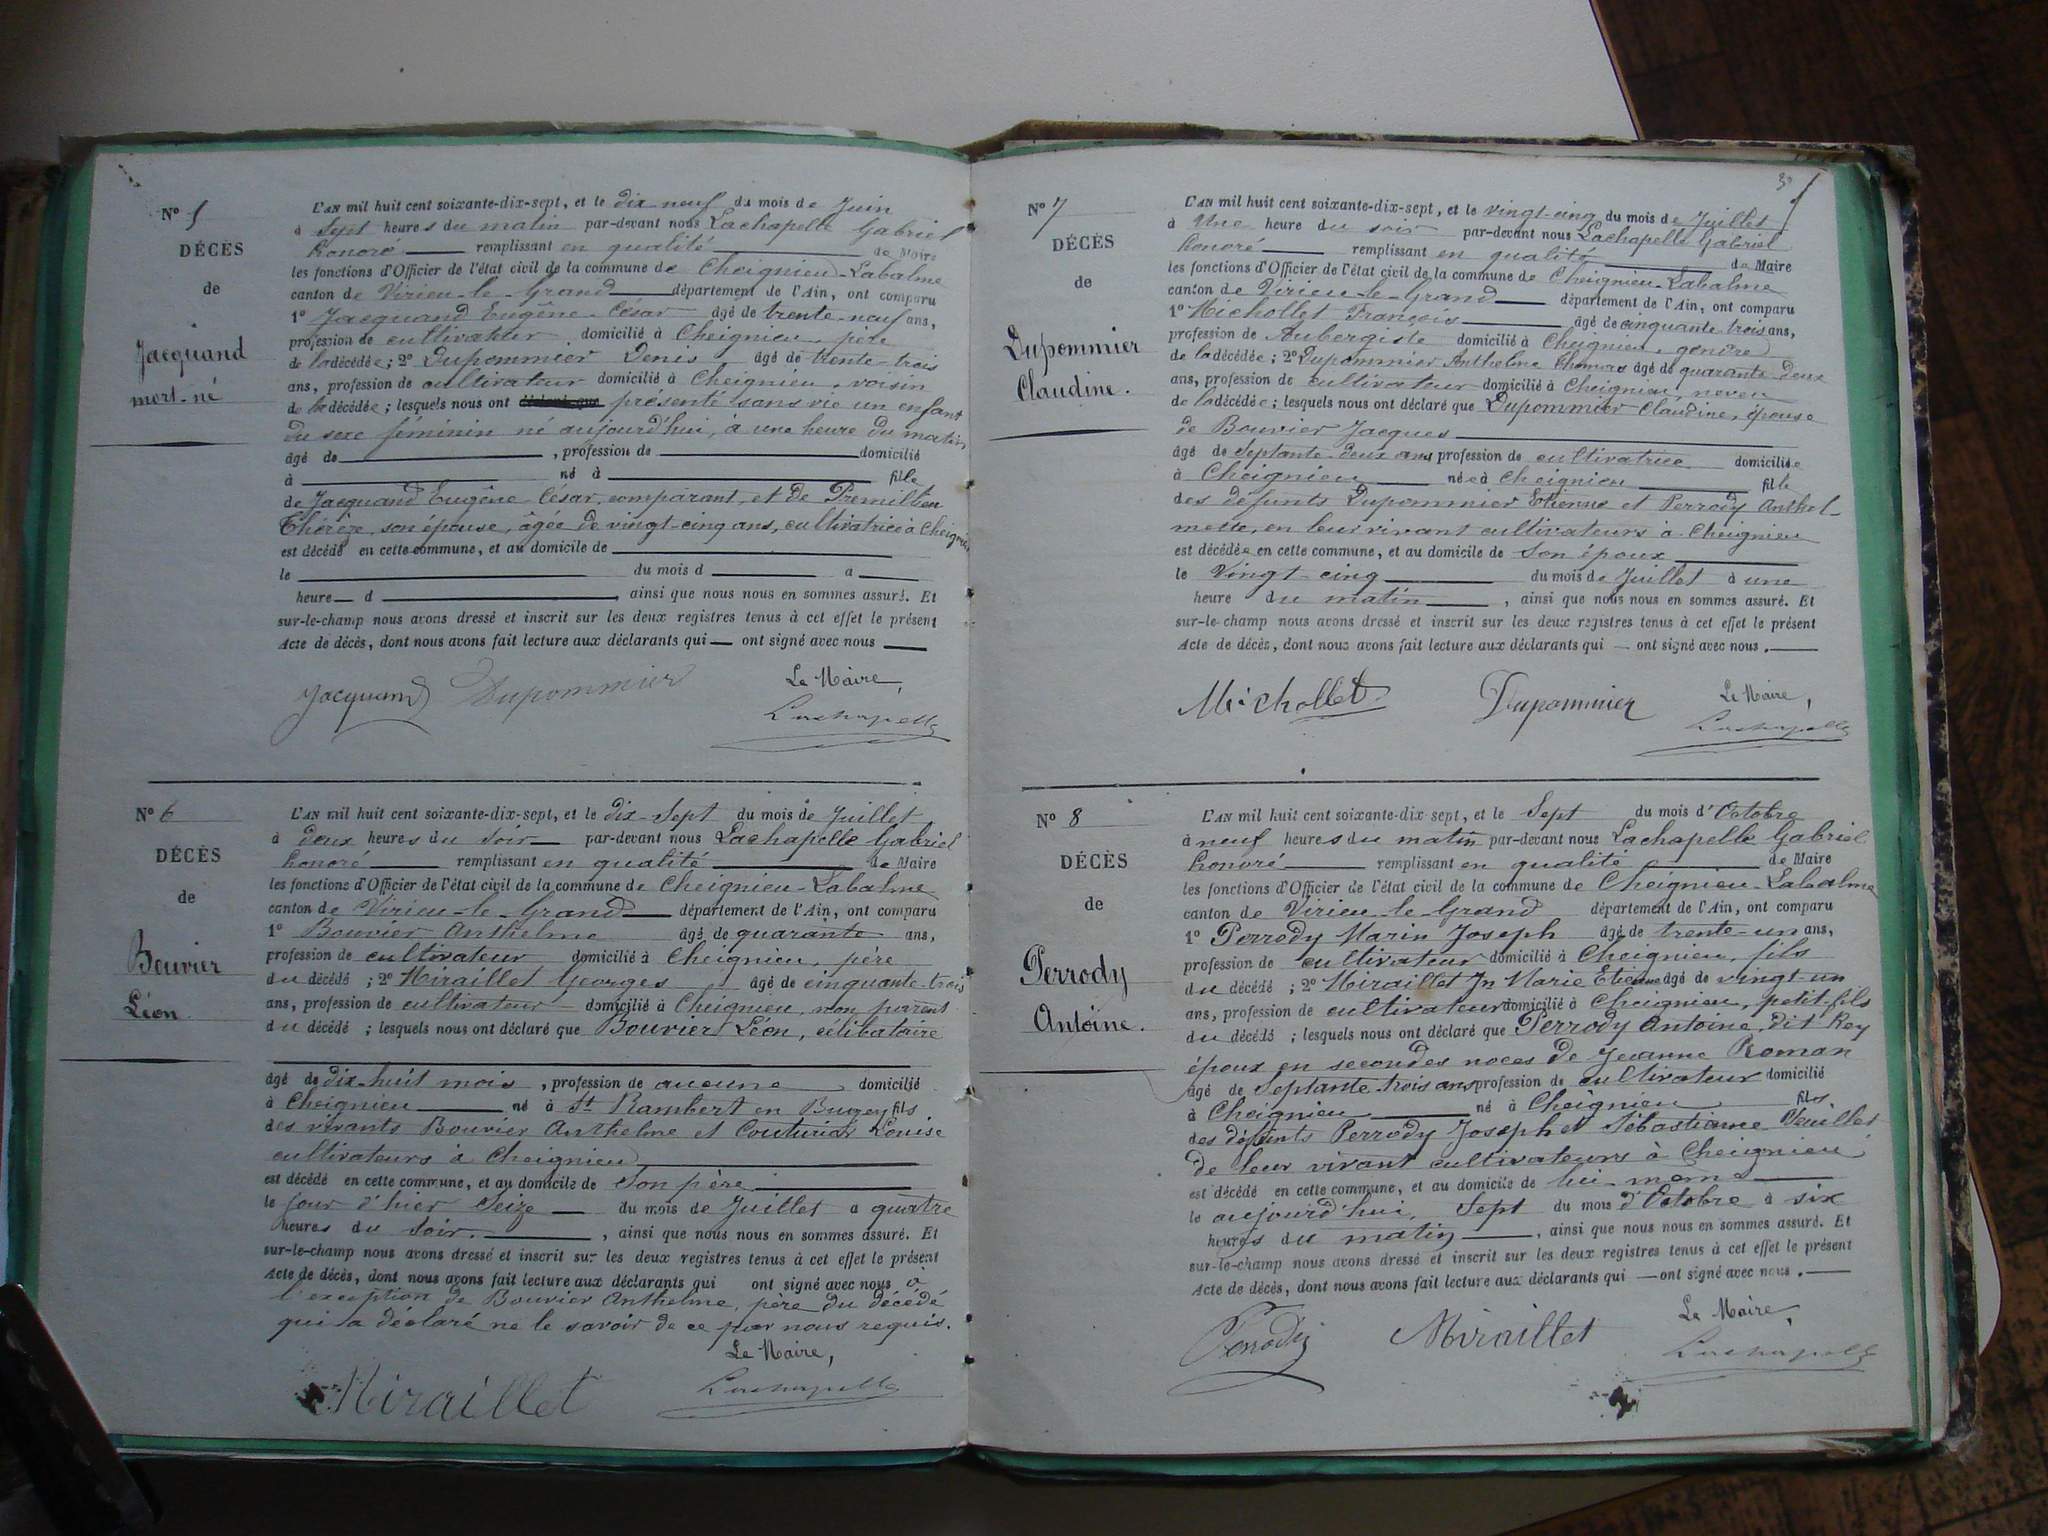 N° 5
DÉCÈS
de
Jacquand
mort-né
L'AN mil huit cent soixante-dix-sept, et le dix neuf du mois de Juin
à Sept heures du matin par-devant nous Lachapelle Gabriel
honoré remplissant en qualité de Maire
les fonctions d'Officier de l'état civil de la commune de Cheignieu-Labalme
canton de Virieu-le-Grand département de l'Ain, ont comparu
1° Jacquand Eugène César âgé de trente-neuf ans,
profession de cultivateur domicilié à Cheignieu, père
de la décédée; 2° Dupommier Denis âgé de trente-trois
ans, profession de cultivateur domicilié à Cheignieu, voisin
de la décédée; lesquels nous ont présenté sans vie un enfant
du sexe féminin né aujourd'hui, à une heure du matin,
âgé de , profession de domicilié
à né à fille
de Jacquand Eugène César, comparant et de Premillieu
Thérèze, son épouse, âgée de vingt-cinq ans, cultivatrice à Cheignieu
est décédé en cette commune, et au domicile de
le du mois d a
heure d , ainsi que nous nous en sommes assuré. Et
sur-le-champ nous avons dressé et inscrit sur les deux registres tenus à cet effet le présent
Acte de décès, dont nous avons fait lecture aux déclarants qui ont signé avec nous
Le Maire,
Jacquand Dupommier Lachapelle
N° 6
DÉCÈS
de
Bouvier
Léon.
L'AN mil huit cent soixante-dix-sept, et le dix-Sept du mois de Juillet
à deux heures du soir par-devant nous Lachapelle Gabriel
honoré remplissant en qualité de Maire
les fonctions d'Officier de l'état civil de la commune de Cheignieu-Labalme
canton de Virieu-le-Grand département de l'Ain, ont comparu
1° Bouvier Anthelme âgé de quarante ans,
profession de cultivateur domicilié à Cheignieu, père
du décédé; 2° Miraillet Georges âgé de cinquante-trois
ans, profession de cultivateur domicilié à Cheignieu, non parent
du décédé; lesquels nous ont déclaré que Bouvier Léon, célibataire
âgé de dix-huit mois, profession de aucune domicilié
à Cheignieu né à St Rambert en Bugey fils
des vivants Bouvier Anthelme et Couturier Louise
cultivateurs à Cheignieu
est décédé en cette commune, et au domicile de son père
le jour d'hier Seize du mois de Juillet a quatre
heures du soir. , ainsi que nous nous en sommes assuré. Et
sur-le-champ nous avons dressé et inscrit sur les deux registres tenus à cet effet le présent
Acte de décès, dont nous avons fait lecture aux déclarants qui ont signé avec nous à
l'exception de Bouvier Anthelme, père du décédé
qui a déclaré ne le savoir de ce par nous requis.
Le Maire,
Miraillet Lachapelle
3
N° 7
DÉCÈS
de
Dupommier
Claudine.
L'AN mil huit cent soixante-dix-sept, et le vingt-cinq du mois de Juillet
à Une heure du soir par-devant nous Lachapelle Gabriel
honoré remplissant en qualité de Maire
les fonctions d'Officier de l'état civil de la commune de Cheignieu-Labalme
canton de Virieu-le-Grand département de l'Ain, ont comparu
1° Michollet François âgé de cinquante trois ans,
profession de Aubergiste domicilié à Cheignieu, gendre
de la décédée; 2° Dupommier Anthelme Thomas âgé de quarante-deux
ans, profession de cultivateur domicilié à Cheignieu, neveu
de la décédée; lesquels nous ont déclaré que Dupommier Claudine, épouse
de Bouvier Jacques
âgé de Septante-deux ans profession de cultivatrice domiciliée
à Cheignieu née à Cheignieu fille
des défunts Dupommier Etienne et Perrody Anthel-
mette, en leur vivant cultivateurs à Cheignieu
est décédée en cette commune, et au domicile de Son époux
le Vingt-cinq du mois de Juillet à une
heure du matin , ainsi que nous nous en sommes assuré. Et
sur-le-champ nous avons dressé et inscrit sur les deux registres tenus à cet effet le présent
Acte de décès, dont nous avons fait lecture aux déclarants qui ont signé avec nous.
Le Maire,
Michollet Dupommier Lachapelle
N° 8
DÉCÈS
de
Perrody
Antoine.
L'AN mil huit cent soixante-dix-sept, et le Sept du mois d'Octobre
à neuf heures du matin par-devant nous Lachapelle Gabriel
honoré remplissant en qualité de Maire
les fonctions d'Officier de l'état civil de la commune de Cheignieu-Labalme
canton de Virieu-le-Grand département de l'Ain, ont comparu
1° Perrody Marin Joseph âgé de trente-un ans,
profession de cultivateur domicilié à Cheignieu, fils
du décédé; 2° Miraillet Jn Marie Etienne âgé de vingt-un
ans, profession de cultivateur domicilié à Cheignieu, petit-fils
du décédé; lesquels nous ont déclaré que Perrody Antoine, dit Rey
époux en secondes noces de Jeanne Roman
âgé de Septante-trois ans profession de cultivateur domicilié
à Cheignieu né à Cheignieu fils
des défunts Perrody Joseph et Sébastienne
de leur vivant cultivateurs à Cheignieu
est décédé en cette commune, et au domicile de lui-même
le aujourd'hui, Sept du mois d'Octobre à six
heures du matin , ainsi que nous nous en sommes assuré. Et
sur-le-champ nous avons dressé et inscrit sur les deux registres tenus à cet effet le présent
Acte de décès, dont nous avons fait lecture aux déclarants qui ont signé avec nous.
Le Maire,
Perrody Miraillet Lachapelle